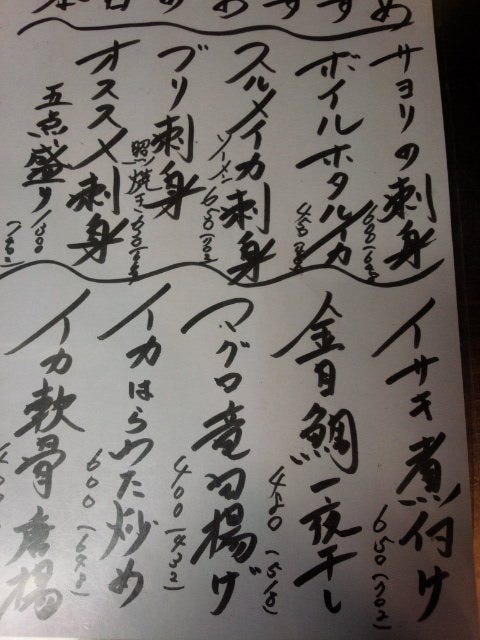 本日のおすすめ
サヨリの刺身
ボイルホタルイカ
スルメイカ刺身
ソーメン 650(702)
ブリ刺身
照焼き
オススメ刺身
五点盛り
イサキ煮付け
650(702)
金目鯛一夜干し
480(518)
マグロ竜田揚げ
400(432)
イカはらわた炒め
600(648)
イカ軟骨唐揚